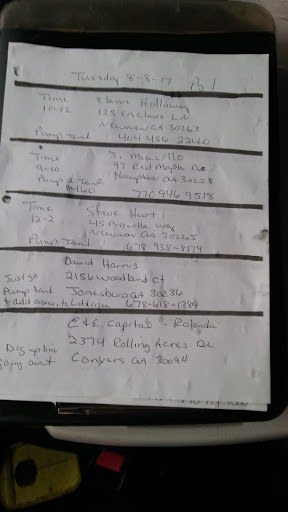 Tuesday 8-8-17 Pg 1
Time Holloway
10-12 125 Enclave LN
Newnan GA 30263
Pump Tank 404 456 2240
Time J.
9-10 97 Red Maple Dr
Pump 2 Tank Hampton GA 30228
770 946 9518
Time Steve Hurt
12-2 45 Way
Newnan GA 30265
Pump Tank 678 938-8179
David Harris
Just go 2156 Woodland Ct
Pump tank Jonesboro GA 30236
& add 678-618-1389
E & E Capital - Rolonda
Dig up line 2374 Rolling Acres Dr
going out Conyers GA 30094